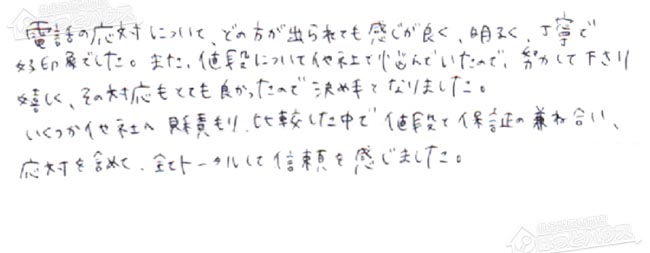 電話の応対について、どの方が出られても感じが良く、明るく、丁寧で
好印象でした。また、値段について他社で悩んでいたので、努力して下さり
嬉しく、その対応もとても良かったので決め手となりました。
いくつか他社へ見積もり、比較した中で値段と保証の兼ね合い、
応対を含めて、全てトータルして信頼を感じました。